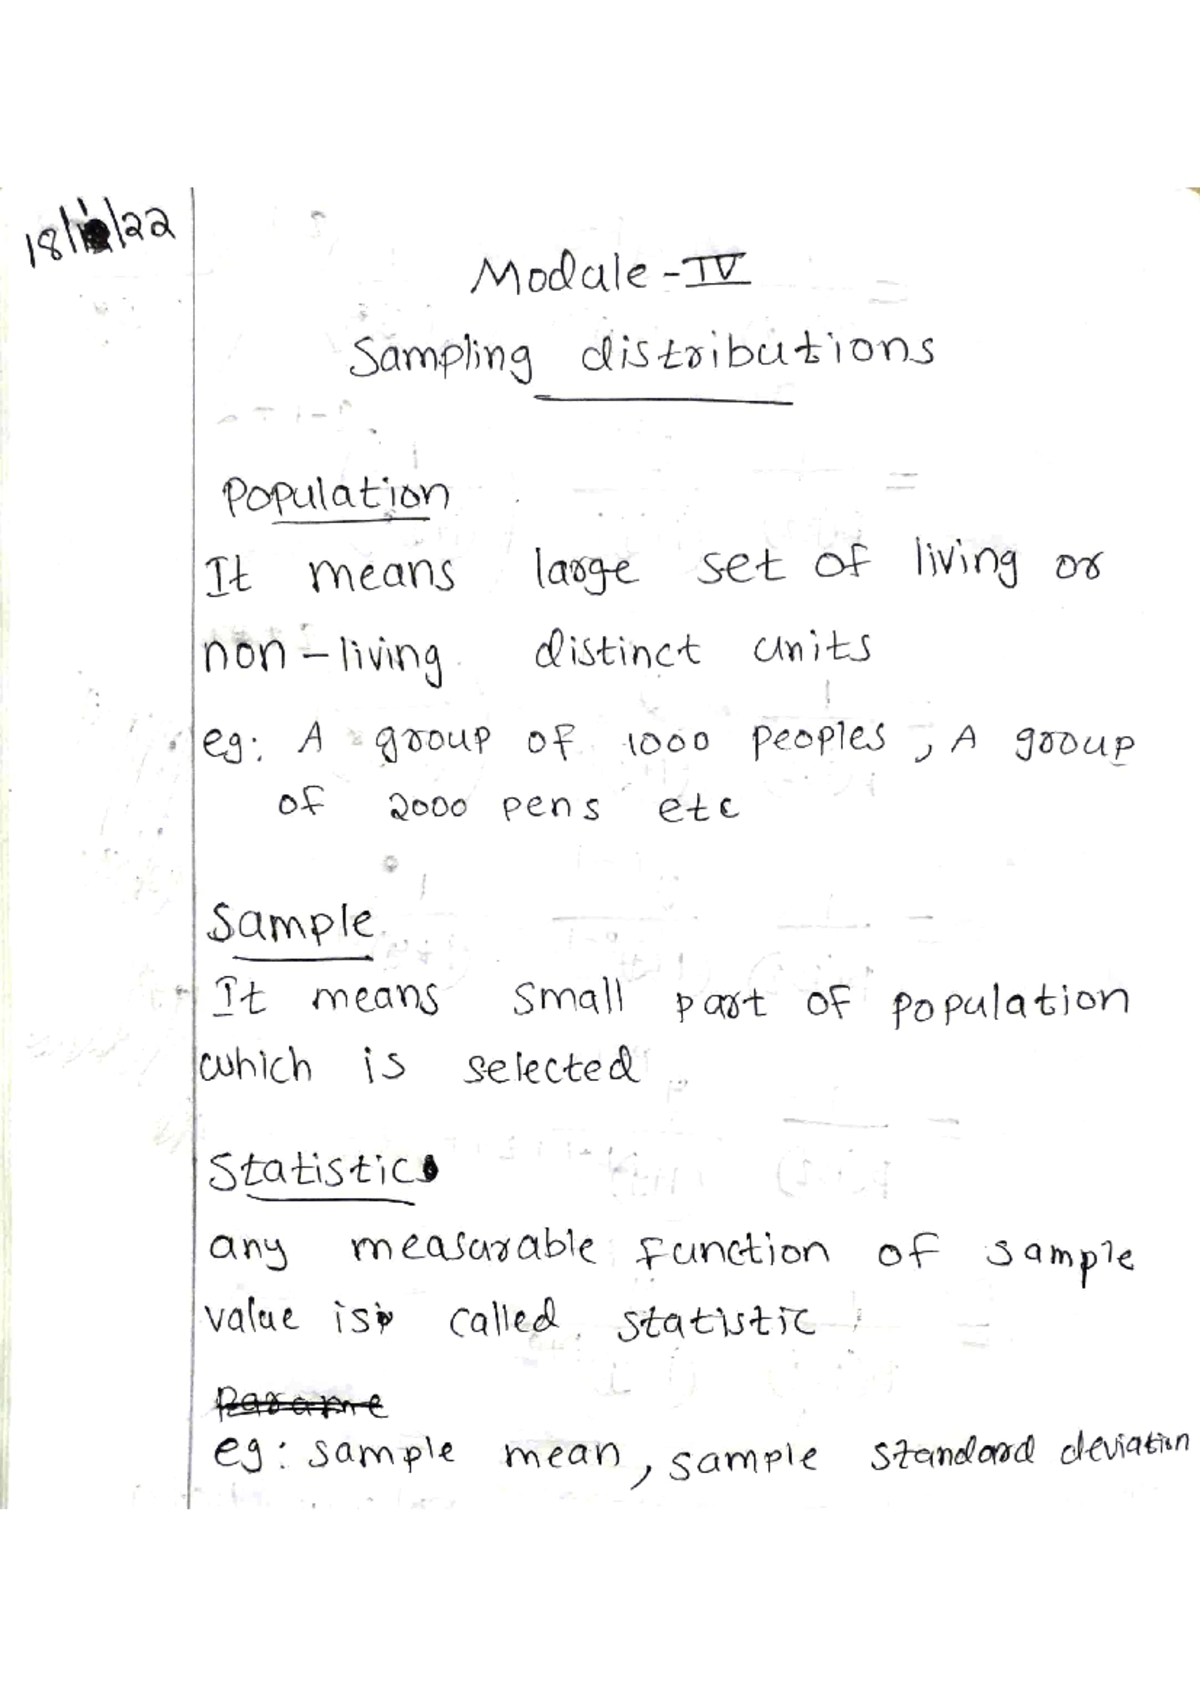 Module - IV
Sampling distributions
Population
It means large set of living or
non-living distinct units
eg: A group of 1000 peoples, A group
of 2000 pens etc
Sample
It means small part of population
which is selected
Statistic
any measurable function of sample
value is called statistic
Parame
eg: sample mean, sample standard deviation